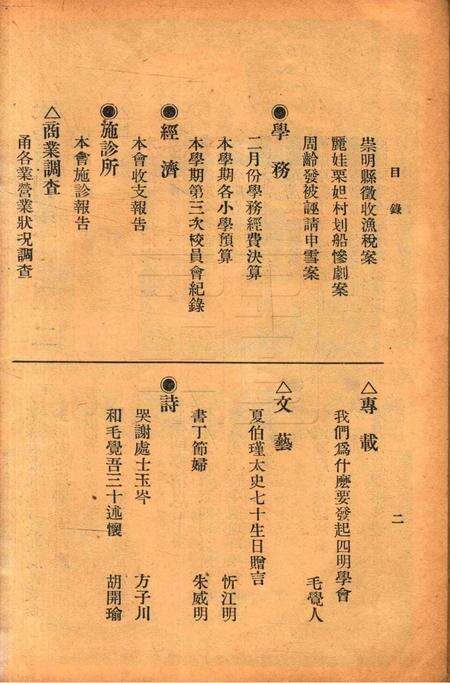 目錄
崇明縣徵收漁稅案
麗娃栗妲村划船慘劇案
周齡發被誣請申雪案
●學務
二月份學務經費決算
本學期各小學預算
本學期第三次校員會紀錄
●經濟
本會收支報告
●施診所
本會施診報告
△商業調查
甬各業營業狀況調查
二
△專載
我們爲什麽要發起四明學會 毛覺人
△文藝
夏伯瑾太史七十生日贈言 忻江明
書丁節婦 朱威明
●詩
哭謝處士玉岑 方子川
和毛覺吾三十述懷 胡開瑜